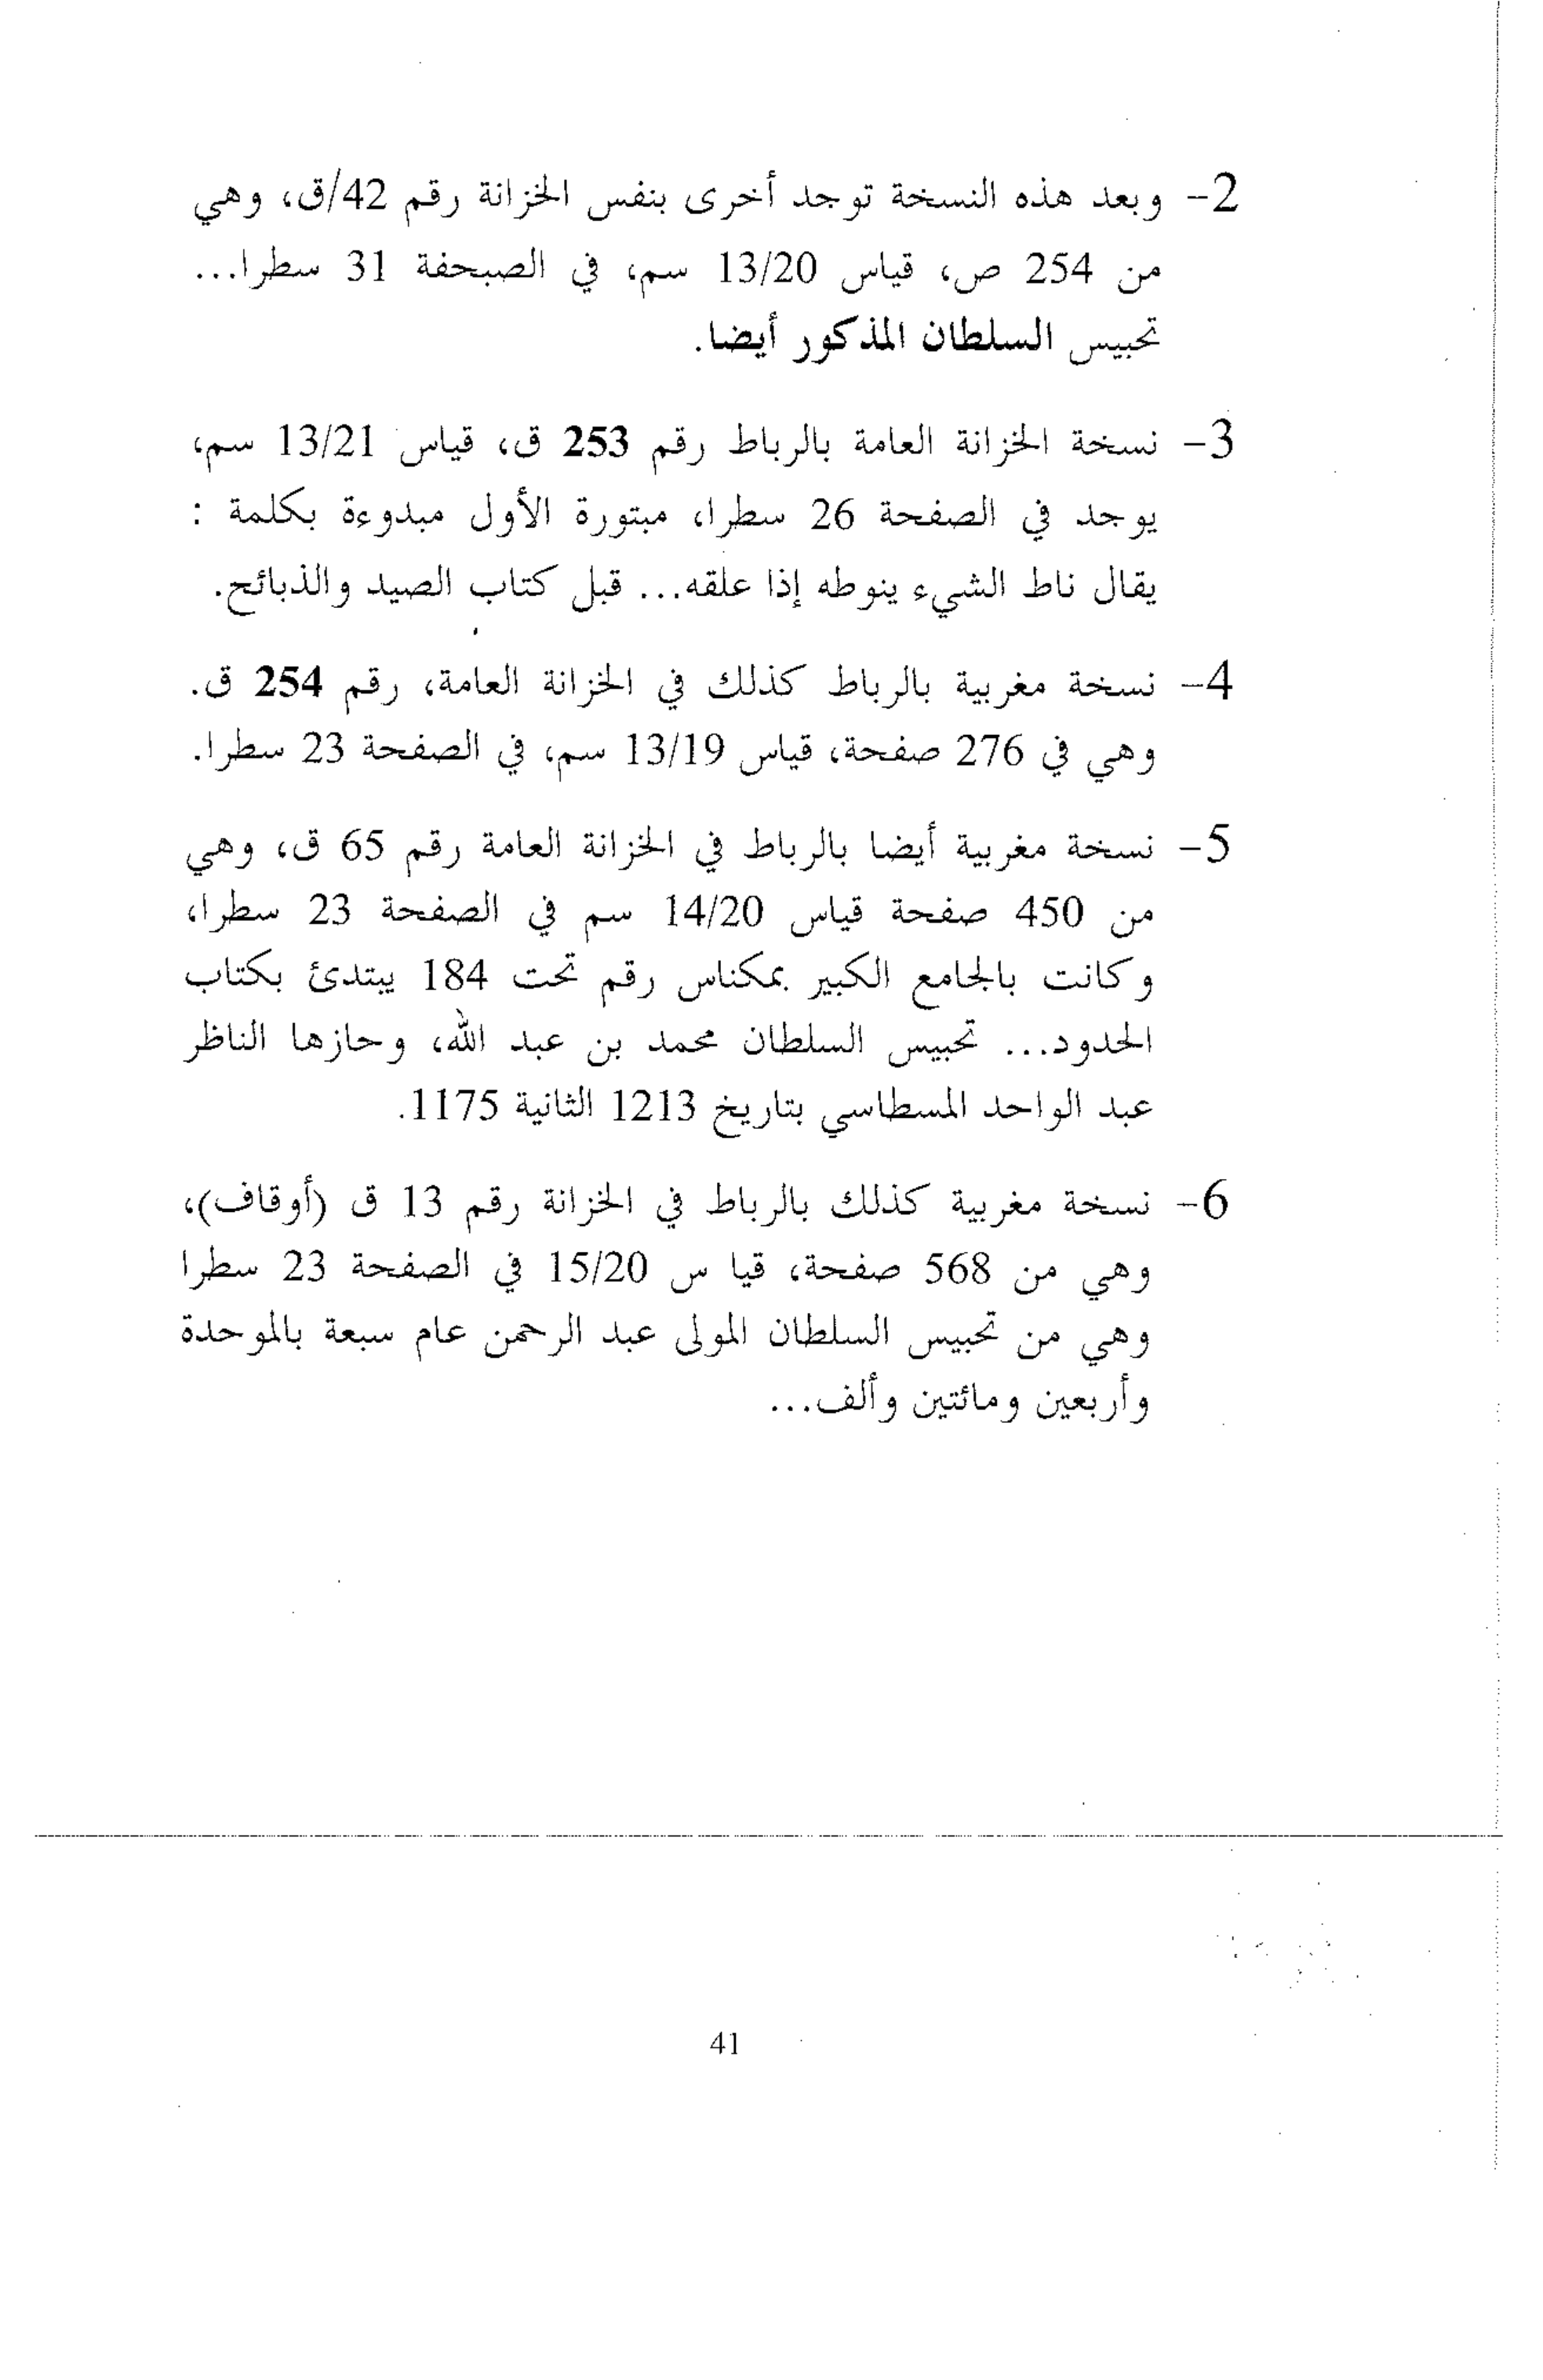 2- وبعد هذه النسخة توجد أخرى بنفس الخزانة رقم 42/ق، وهي
من 254 ص، قياس 13/20 سم، في الصبحفة 31 سطرا...
تحبيس السلطان المذكور أيضا.
3- نسخة الخزانة العامة بالرباط رقم 253 ق، قياس 13/21 سم،
يوجد في الصفحة 26 سطرا، مبتورة الأول مبدوءة بكلمة :
يقال ناط الشيء ينوطه إذا علقه... قبل كتاب الصيد والذبائح.
4- نسخة مغربية بالرباط كذلك في الخزانة العامة، رقم 254 ق.
وهي في 276 صفحة، قياس 13/19 سم، في الصفحة 23 سطرا.
5- نسخة مغربية أيضا بالرباط في الخزانة العامة رقم 65 ق، وهي
من 450 صفحة قياس 14/20 سم في الصفحة 23 سطرا،
وكانت بالجامع الكبير بمكناس رقم تحت 184 يبتدئ بكتاب
الحدود... تحبيس السلطان محمد بن عبد الله، وحازها الناظر
عبد الواحد المسطاسي بتاريخ 1213 الثانية 1175.
6- نسخة مغربية كذلك بالرباط في الخزانة رقم 13 ق (أوقاف)،
وهي من 568 صفحة، قيا س 15/20 في الصفحة 23 سطرا
وهي من تحبيس السلطان المولى عبد الرحمن عام سبعة بالموحدة
وأربعين ومائتين وألف...
41